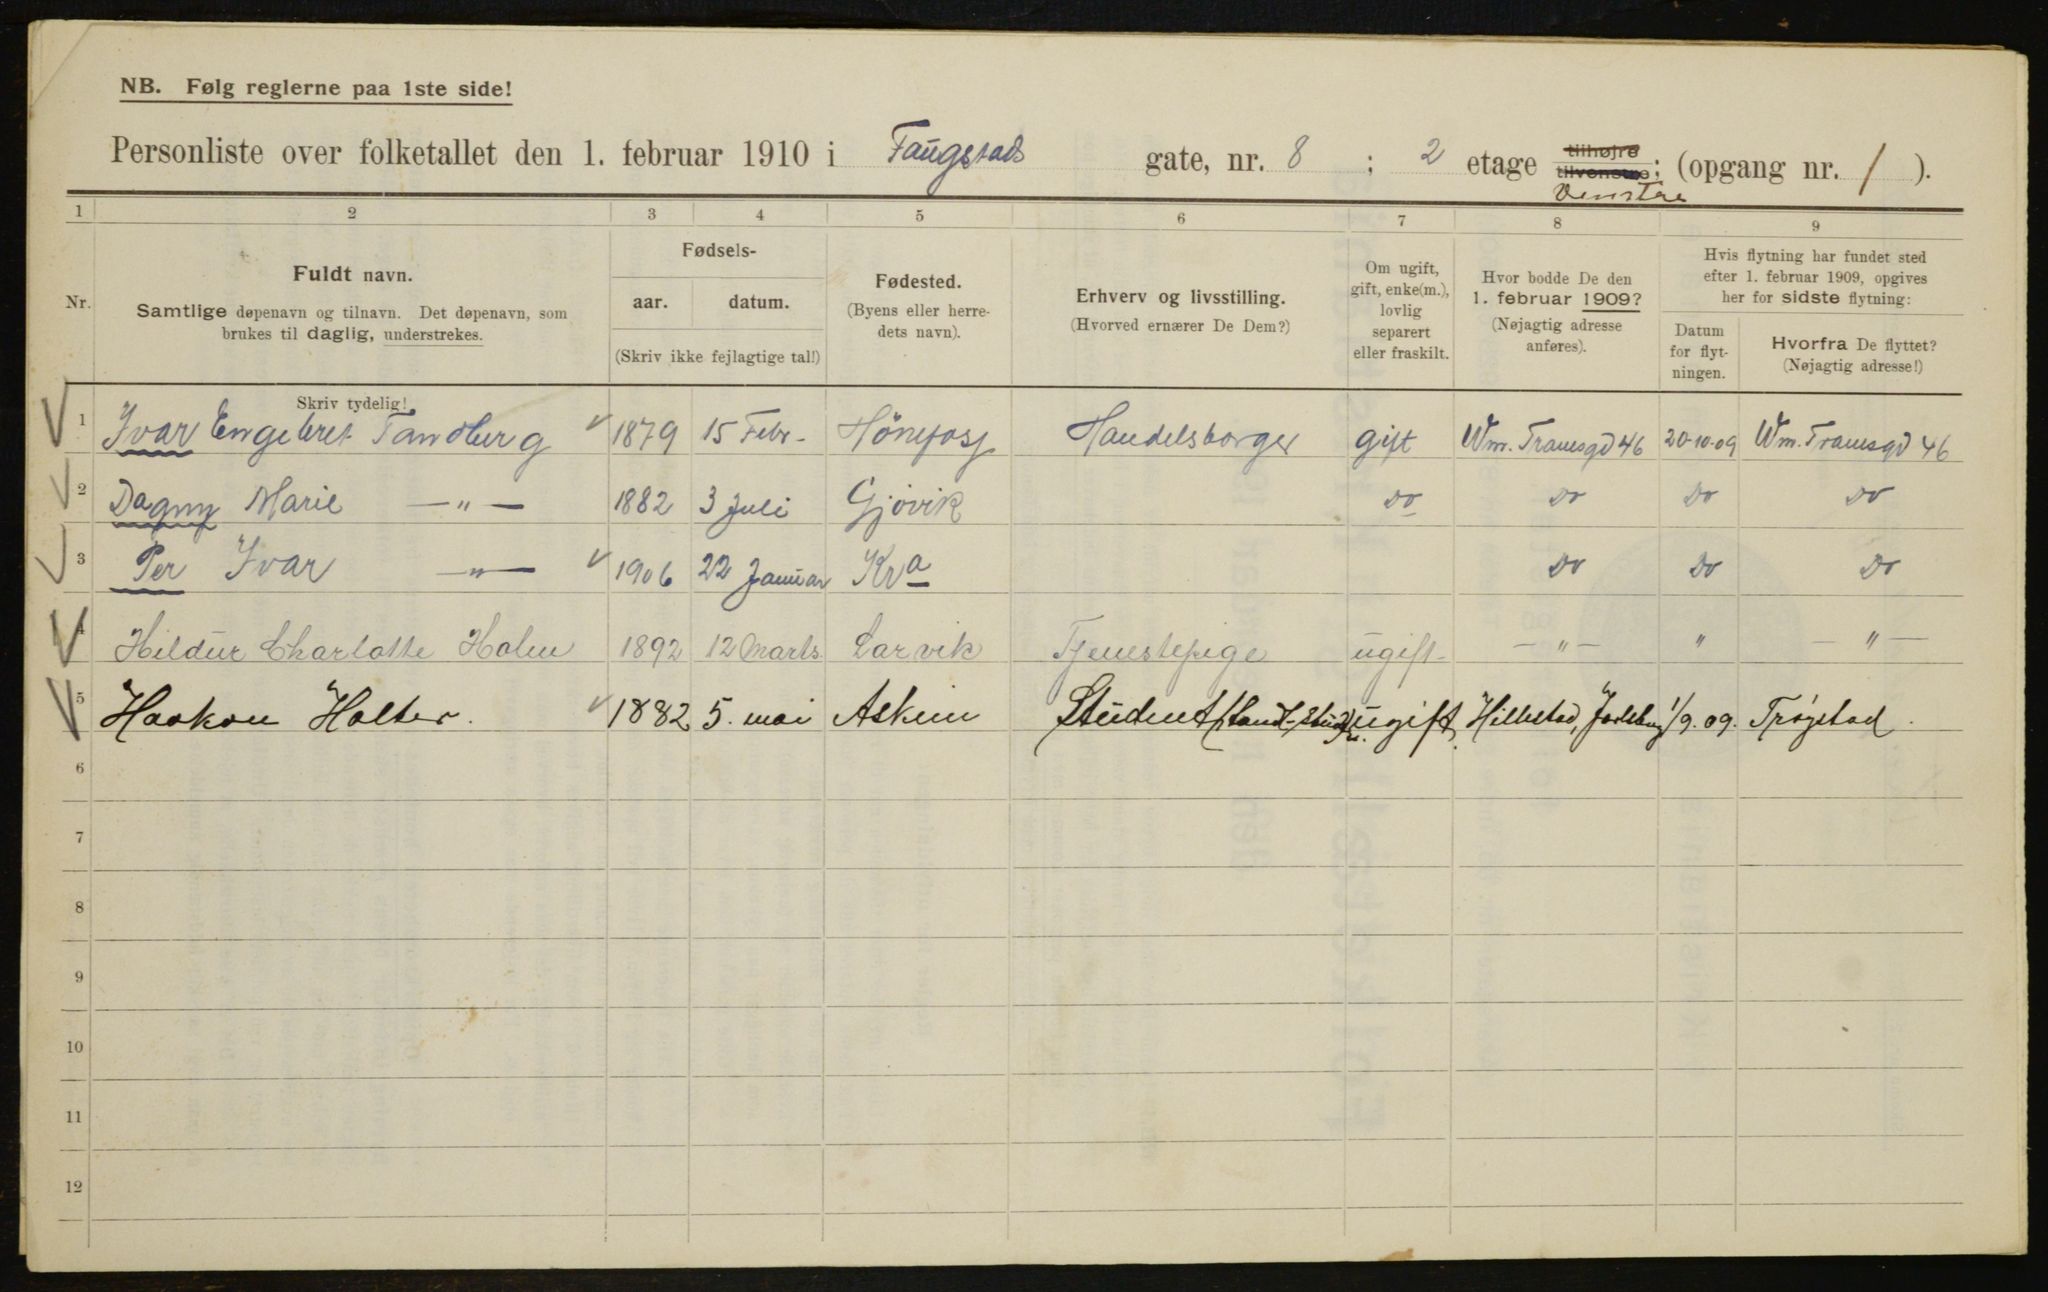 NB. Følg reglerne paa 1ste side!
Personliste over folketallet den 1. februar 1910 i Faugstads gate, nr. 8 ; 2 etage tilhøjre tilvenstre; (opgang nr. 1 ).
Venstre
1 2 3 4 5 6 7 8 9
Nr.
Fuldt navn.
Samtlige døpenavn og tilnavn. Det døpenavn, som
brukes til daglig, understrekes.
Skriv tydelig!
Fødsels-
aar. datum.
(Skriv ikke fejlagtige tal!)
Fødested.
(Byens eller herre-
dets navn).
Erhverv og livsstilling.
(Hvorved ernærer De Dem?)
Om ugift,
gift, enke(m.),
lovlig
separert
eller fraskilt.
Hvor bodde De den
1. februar 1909?
(Nøjagtig adresse
anføres).
Hvis flytning har fundet sted
efter 1. februar 1909, opgives
her for sidste flytning:
Datum
for flyt-
ningen.
Hvorfra De flyttet?
(Nøjagtig adresse!)
1 Ivar Engebret Tandberg 1879 15 Febr- Hönefoss Handelsborger gift Wm. Tranesgd 46 20-10-09 Wm. Tranesgd 46
2 Dagny Marie —"— 1882 3 Juli Gjövik Do Do Do Do
3 Per Ivar —"— 1906 22 Januar Kra Do Do Do
4 Hildur Charlotte Holm 1892 12 Marts Larvik Tjenestepige ugift —"— " —"—
5 Haakon Holter. 1882 5. mai Askim Student ugift, Hillestad, Jarlsberg 1/9.09. Trøgstad.
6
7
8
9
10
11
12